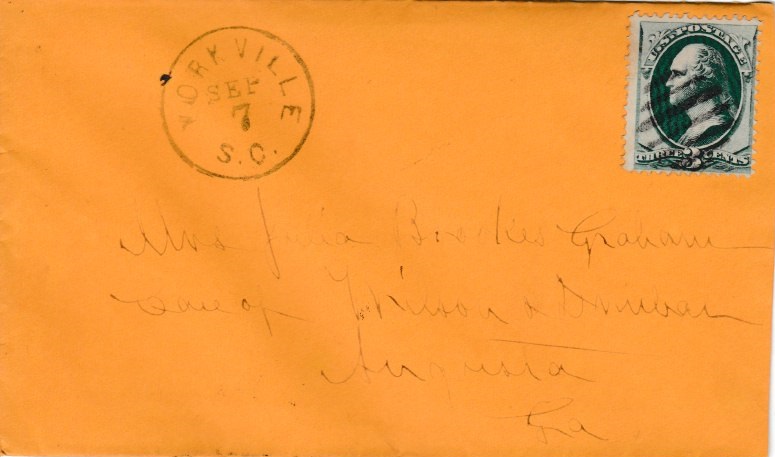 YORKVILLE
SEP
7
S.C.
U.S. POSTAGE
THREE 3 CENTS
Mrs Julia Graham
Care of Wilson &
Augusta
Ga